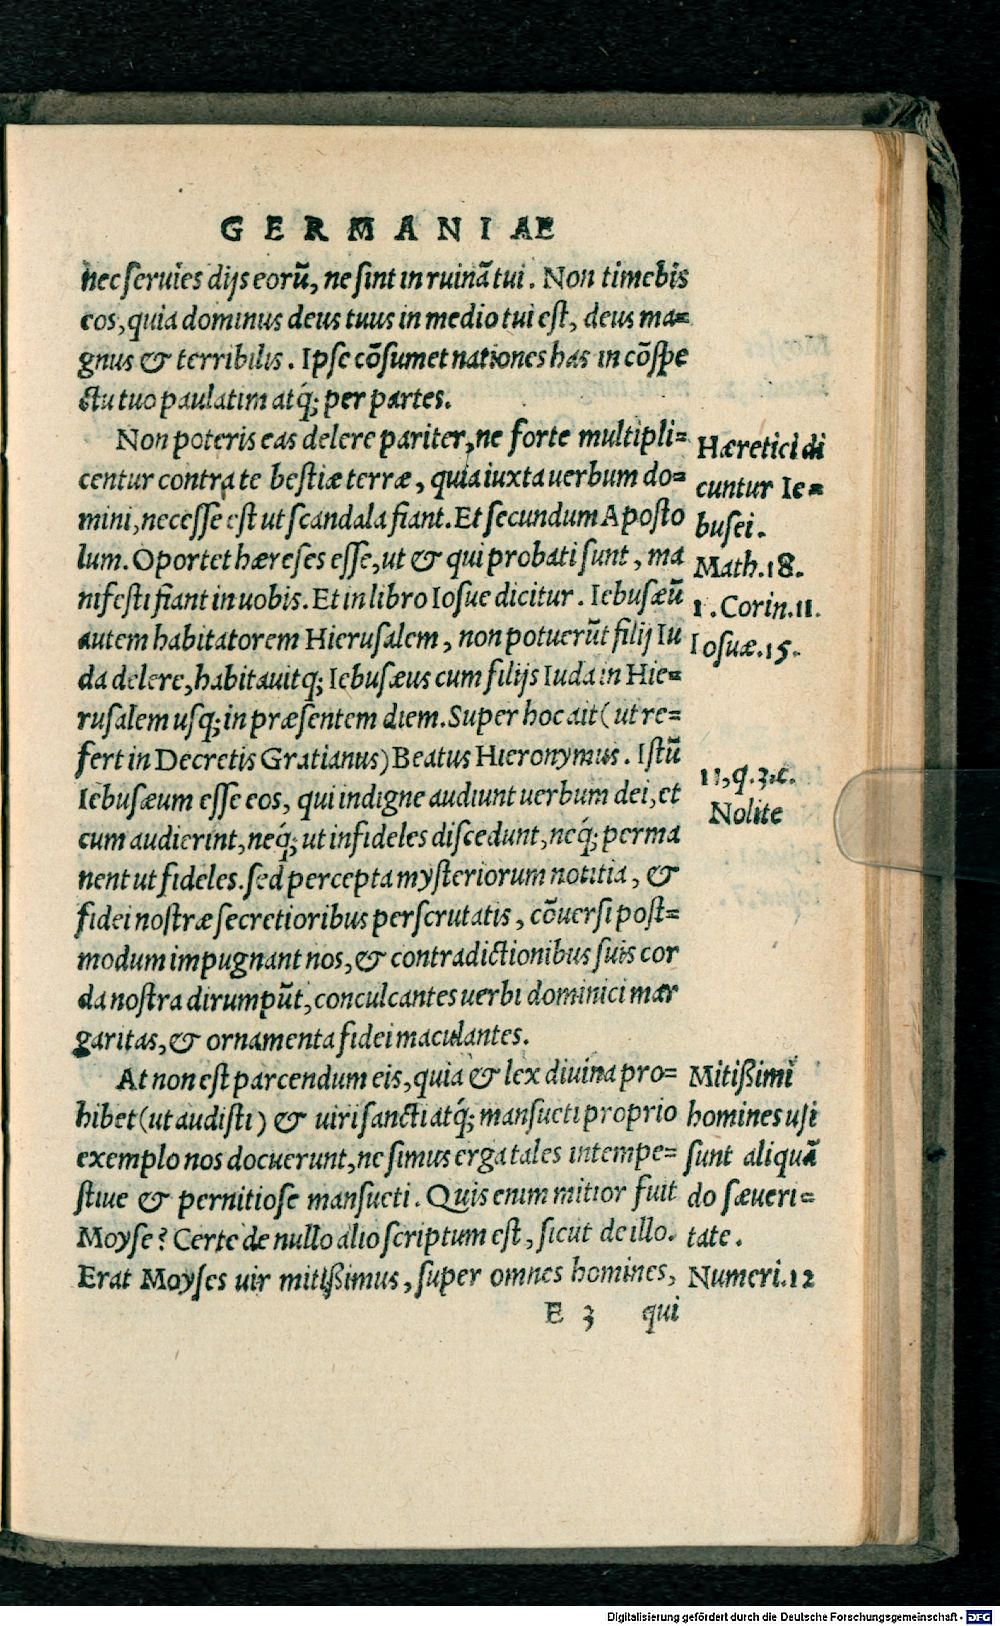 GERMANIAE
nec seruies dijs eorũ, ne sint in ruinã tui. Non timebis
eos, quia dominus deus tuus in medio tui est, deus ma=
gnus & terribilis. Ipse cõsumet nationes has in cõspe
ctu tuo paulatim atq́; per partes.
Non poteris eas delere pariter, ne forte multipli=
centur contra te bestiæ terræ, quia iuxta uerbum do=
mini, necesse est ut scandala fiant. Et secundum Aposto
lum. Oportet hæreses esse, ut & qui probati sunt, ma
nifesti fiant in uobis. Et in libro Iosue dicitur. Iebusæũ
autem habitatorem Hierusalem, non potuerũt filij Iu
da delere, habitauitq; Iebusæus cum filijs Iuda in Hie=
rusalem usq; in præsentem diem. Super hoc ait (ut re=
fert in Decretis Gratianus) Beatus Hieronymus. Istũ
Iebusæum esse eos, qui indigne audiunt uerbum dei, et
cum audierint, neq́; ut infideles discedunt, neq́; perma
nent ut fideles. sed percepta mysteriorum notitia, &
fidei nostræ secretioribus perscrutatis, cõuersi post=
modum impugnant nos, & contradictionibus suis cor
da nostra dirumpũt, conculcantes uerbi dominici mar
garitas, & ornamenta fidei maculantes.
At non est parcendum eis, quia & lex diuina pro=
hibet (ut audisti) & uiri sancti atq́; mansueti proprio
exemplo nos docuerunt, ne simus erga tales intempe=
stiue & pernitiose mansueti. Quis enim mitior fuit
Moyse? Certe de nullo alio scriptum est, sicut de illo.
Erat Moyses uir mitißimus, super omnes homines,
E 3 qui
Hæretici di
cuntur Ie=
busei.
Math.18.
1. Corin.11.
Iosuæ.15.
11,q.3.c.
Nolite
Mitißimi
homines usi
sunt aliquã
do sæueri=
tate.
Numeri.12
Digitalisierung gefördert durch die Deutsche Forschungsgemeinschaft - DFG